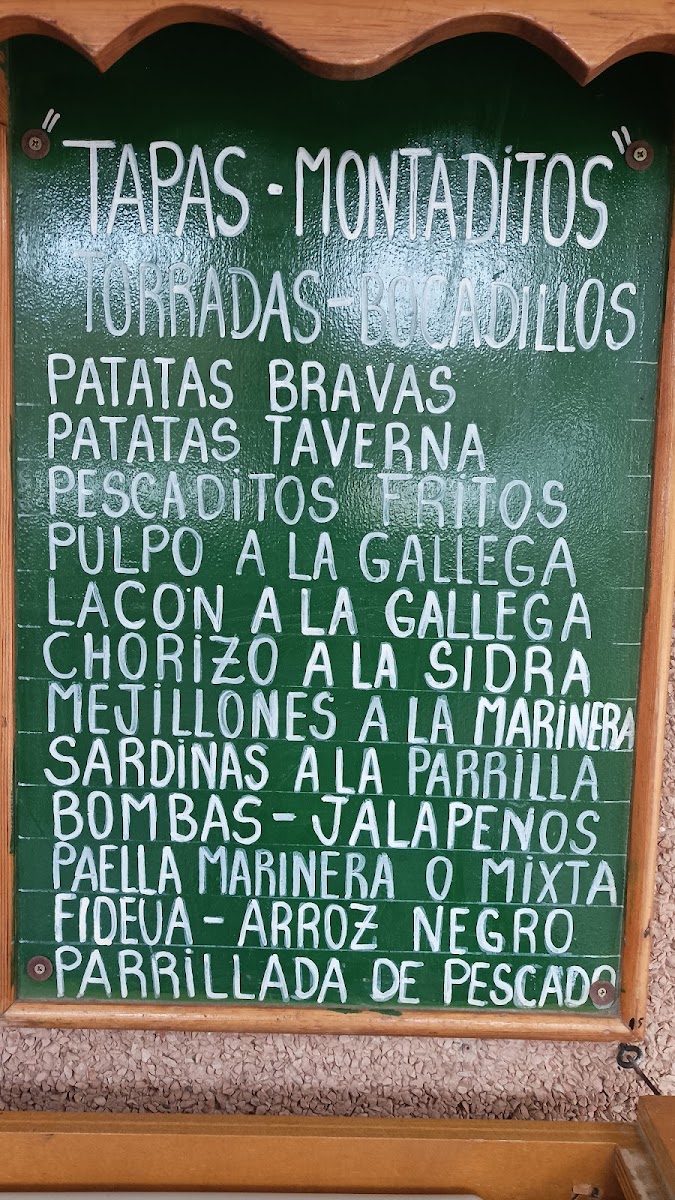 "TAPAS - MONTADITOS"
TORRADAS - BOCADILLOS
PATATAS BRAVAS
PATATAS TAVERNA
PESCADITOS FRITOS
PULPO A LA GALLEGA
LACON A LA GALLEGA
CHORIZO A LA SIDRA
MEJILLONES A LA MARINERA
SARDINAS A LA PARRILLA
BOMBAS - JALAPENOS
PAELLA MARINERA O MIXTA
FIDEUA - ARROZ NEGRO
PARRILLADA DE PESCADO